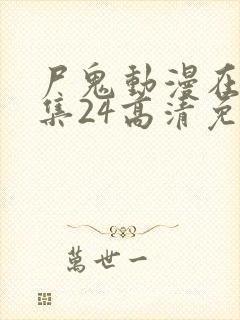 尸鬼動漫在
集24高清免
萬世一